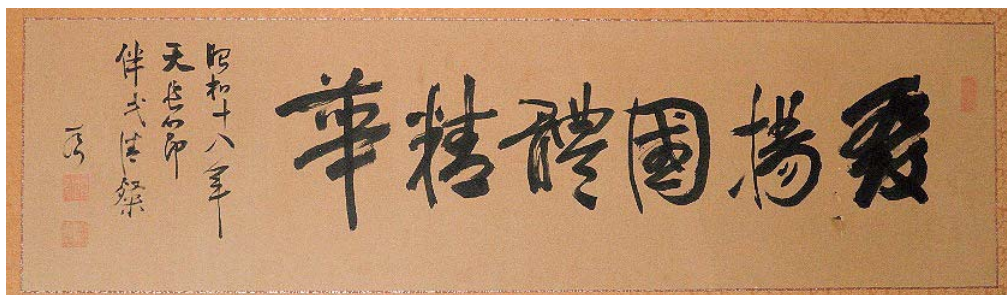 發揚國體精華
昭和十八年
天長節
伴武清燦